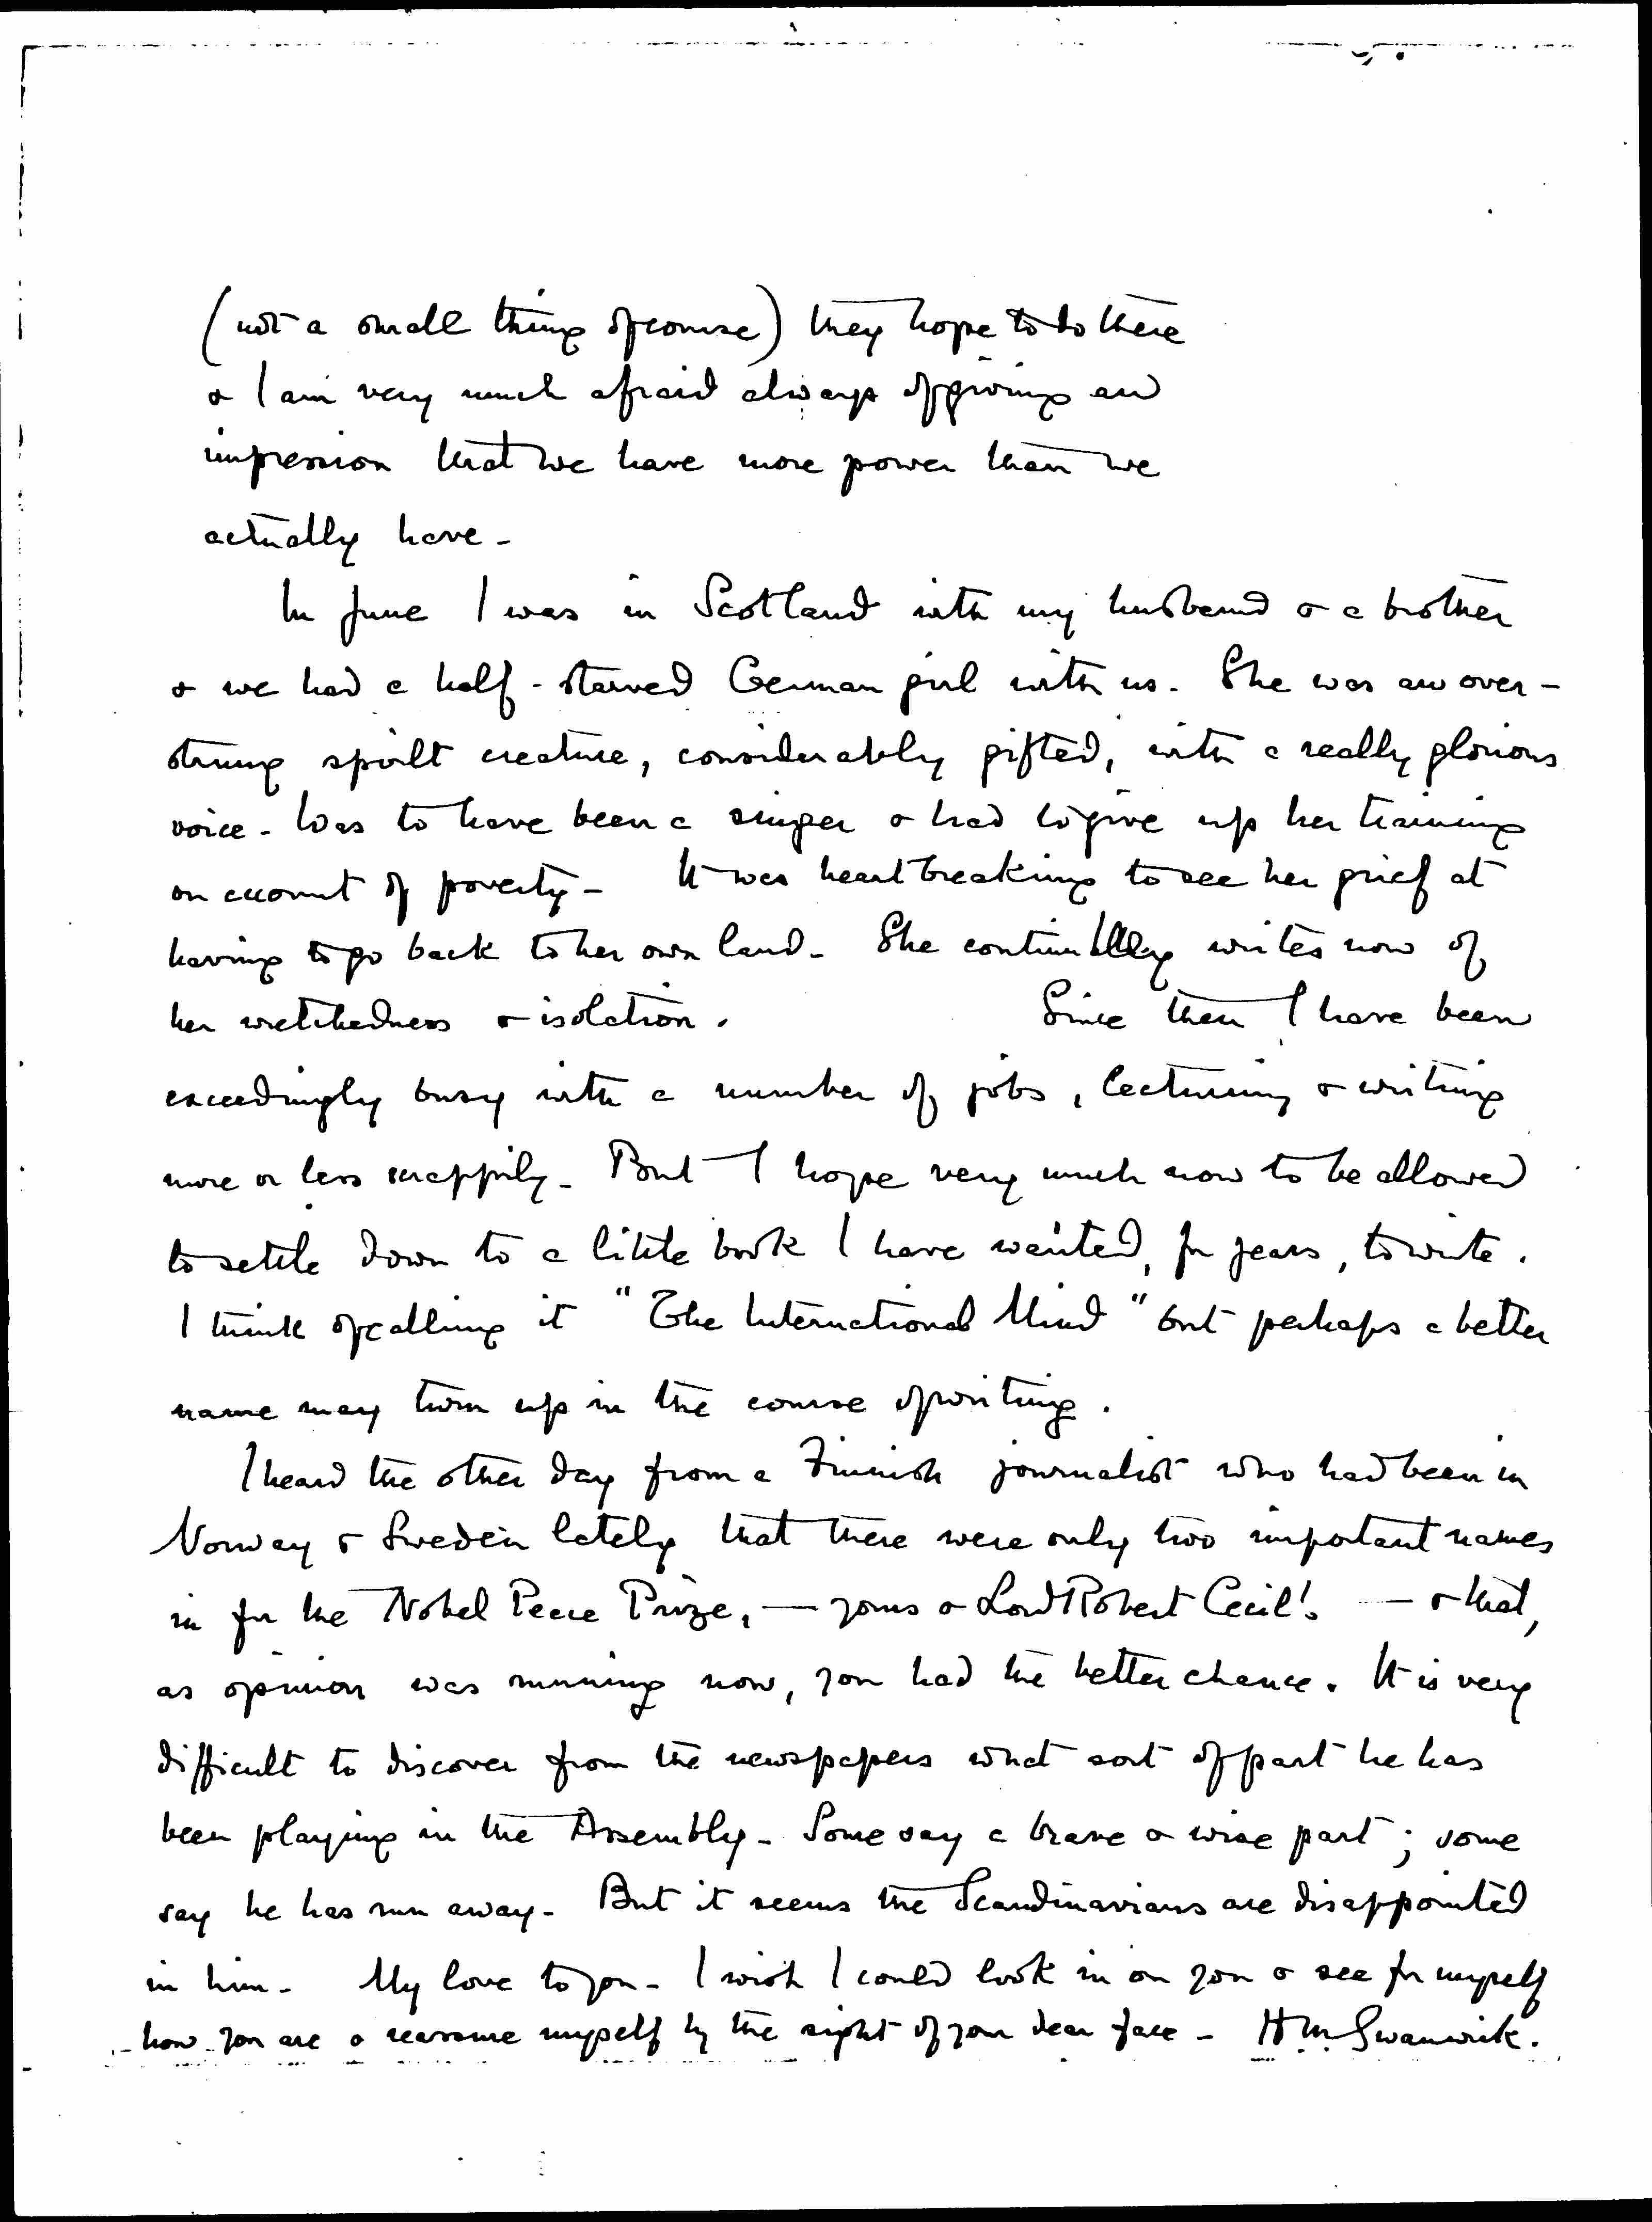 (not a small thing of course) they hope to do there
& I am very much afraid always of giving an
impression that we have more power than we
actually have -
In June I was in Scotland with my husband & a brother
& we had a half-starved German girl with us. She was an over-
strung spoilt creature, considerably gifted, with a really glorious
voice - Was to have been a singer & had to give up her training
on account of poverty - It was heartbreaking to see her grief at
having to go back to her own land - She continually writes now of
her wretchedness & isolation. Since then I have been
exceedingly busy with a number of jobs, lecturing & writing
more or less scrappily - But I hope very much now to be allowed
to settle down to a little book I have wanted, for years, to write.
I think of calling it "The International Mind" but perhaps a better
name may turn up in the course of writing.
I heard the other day from a Finnish journalist who had been in
Norway & Sweden lately that there were only two important names
in for the Nobel Peace Prize, — yours & Lord Robert Cecil's — & that,
as opinion was running now, you had the better chance. It is very
difficult to discover from the newspapers what sort of part he has
been playing in the Assembly - Some say a brave & wise part; some
say he has run away - But it seems the Scandinavians are disappointed
in him - My love to you - I wish I could look in on you & see for myself
how you are & reassure myself by the sight of your dear face - H.M. Swanwick.